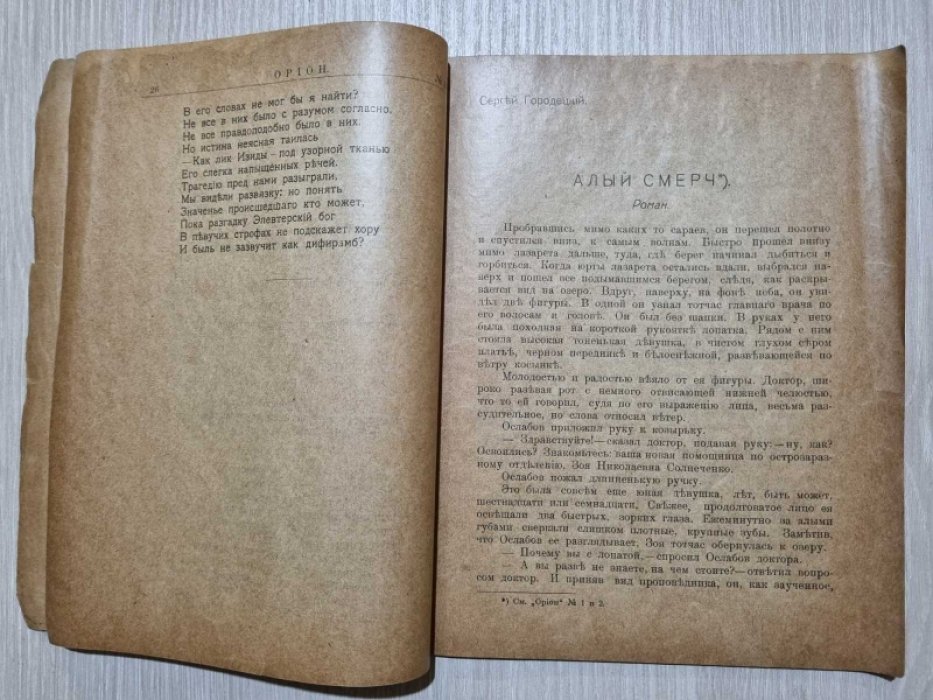 26
ОРІОН.
№
В его словах не мог бы я найти?
Не все в них было с разумом согласно,
Не все правдоподобно было в них.
Но истина неясная таилась
—Как лик Изиды—под узорной тканью
Его слегка напыщенных рѣчей.
Трагедію пред нами разыграли,
Мы видѣли развязку: но понять
Значенье происшедшаго кто может,
Пока разгадку Элевтерскій бог
В пѣвучих строфах не подскажет хору
И быль не зазвучит как дифирамб?
Сергѣй Городецкий.
АЛЫЙ СМЕРЧ*).
Роман.
Пробравшись мимо каких то сараев, он перешел полотно
и спустился вниз, к самым волнам. Быстро прошел внизу
мимо лазарета дальше, туда, гдѣ берег начинал дыбиться и
горбиться. Когда юрты лазарета остались вдали, выбрался на-
верх и пошел все подымавшимся берегом, слѣдя, как раскры-
вается вид на озеро. Вдруг, наверху, на фонѣ неба, он уви-
дѣл двѣ фигуры. В одной он узнал тотчас главнаго врача по
его волосам и головѣ. Он был без шапки. В руках у него
была походная на короткой рукояткѣ лопатка. Рядом с ним
стояла высокая тоненькая дѣвушка, в чистом глухом сѣром
платьѣ, черном передникѣ и бѣлоснѣжной, развѣвающейся по
вѣтру косынкѣ.
Молодостью и радостью вѣяло от ея фигуры. Доктор, ши-
роко разѣвая рот с немного отвисающей нижней челюстью,
что то ей говорил, судя по его выражению лица, весьма раз-
судительное, но слова относил вѣтер.
Ослабов приложил руку к козырьку.
— Здравствуйте!—сказал доктор, подавая руку:—ну, как?
Освоились? Знакомьтесь: ваша новая помощница по острозараз-
ному отдѣлению. Зоя Николаевна Солнеченко.
Ослабов пожал длинненькую ручку.
Это была совсѣм еще юная дѣвушка, лѣт, быть может,
шестнадцати или семнадцати. Свѣжее, продолговатое лицо ея
освѣщали два быстрых, зорких глаза. Ежеминутно за алыми
губами сверкали слишком плотные, крупные зубы. Замѣтив,
что Ослабов ее разглядывает, Зоя тотчас обернулась к озеру.
— Почему вы с лопатой,—спросил Ослабов доктора.
— А вы развѣ не знаете, на чем стоите?—отвѣтил вопро-
сом доктор. И приняв вид проповѣдника, он, как заученное,
*) См. „Оріон“ № 1 и 2.